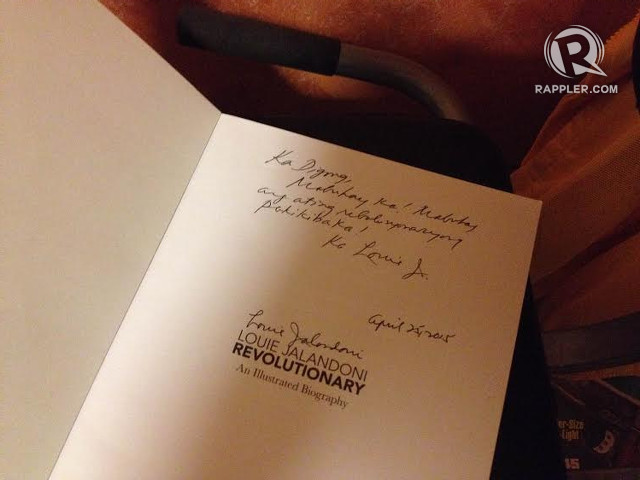 RAPPLER.COM
Ka Digong,
Mabuhay ka! Mabuhay
ang ating rebolusyonaryong
pakikibaka!
Ka Louie J.
April 25, 2015
Louie Jalandoni
LOUIE JALANDONI
REVOLUTIONARY
An Illustrated Biography
er-Size
Light